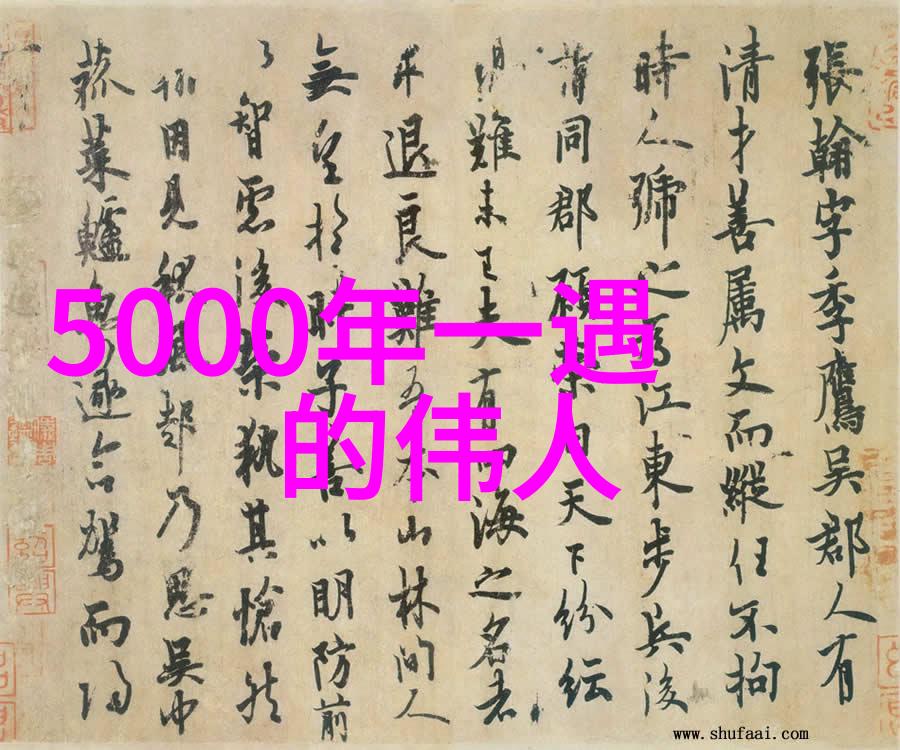 張翰字季鷹吳郡人有
清才善属文而縱任不拘
時人號之為江東步兵後
謂同郡顧榮曰天下紛紜
難未已夫有四海之名者
求退良難吾本山林間人
無望於時子善以明防前
以智慮後榮執其愴然
翰因見秋風起乃思吳中
菰菜鱸魚遂命駕而歸
5000年一遇
的伟人
www.shufaai.com